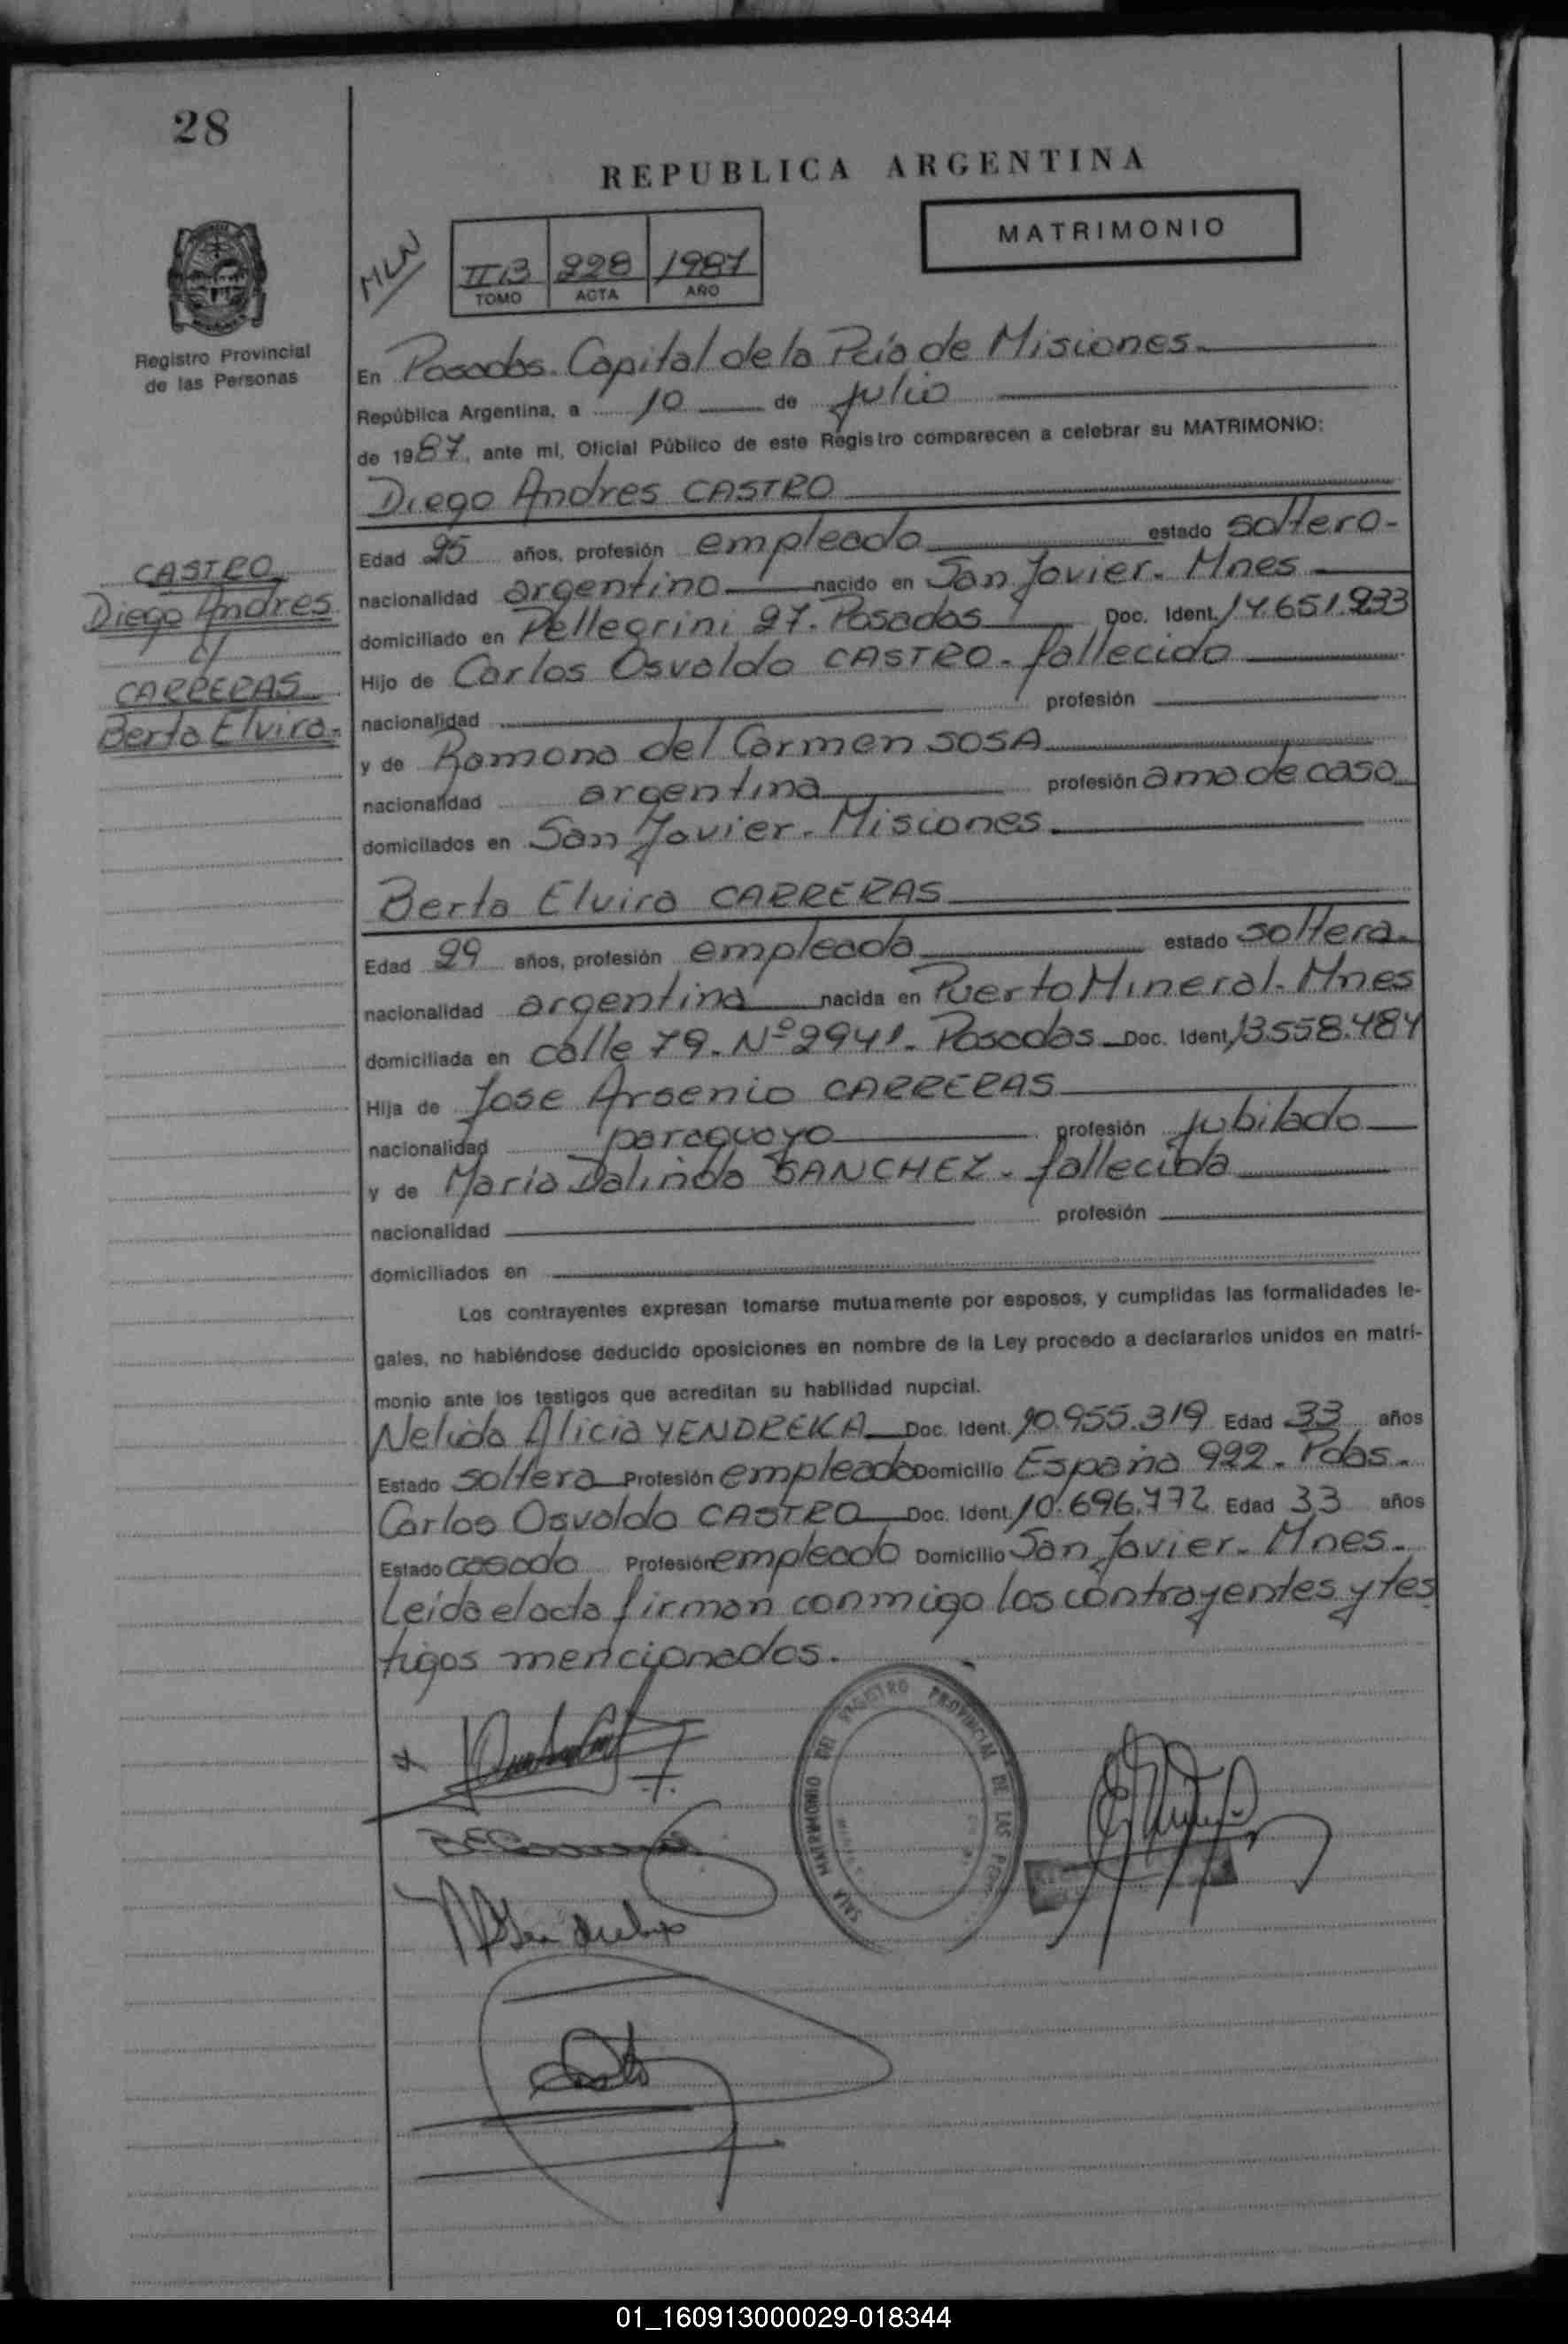 28
REPUBLICA ARGENTINA
MATRIMONIO
MLN
II B 228 1987
TOMO ACTA AÑO
Registro Provincial
de las Personas
En Posadas. Capital de la Pcia de Misiones.
República Argentina, a 10 de julio
de 1987, ante mi, Oficial Público de este Registro comparecen a celebrar su MATRIMONIO:
Diego Andres CASTRO
Edad 25 años, profesión empleado estado soltero-
nacionalidad argentino nacido en San Javier. Mnes
domiciliado en Pellegrini 27. Posadas Doc. Ident. 14.651.233
Hijo de Carlos Osvaldo CASTRO. fallecido
nacionalidad profesión
y de Ramona del Carmen SOSA
nacionalidad argentina profesión ama de casa
domiciliados en San Javier. Misiones.
CASTRO
Diego Andres
c/
CARRERAS
Berta Elvira.
Berta Elvira CARRERAS
Edad 29 años, profesión empleada estado soltera.
nacionalidad argentina nacida en Puerto Mineral. Mnes
domiciliada en calle 79. Nº 2941. Posadas Doc. Ident. 13.558.484
Hija de Jose Arsenio CARRERAS
nacionalidad paraguayo profesión jubilado
y de Maria Dalinda SANCHEZ. fallecida
nacionalidad profesión
domiciliados en
Los contrayentes expresan tomarse mutuamente por esposos, y cumplidas las formalidades le-
gales, no habiéndose deducido oposiciones en nombre de la Ley procedo a declararlos unidos en matri-
monio ante los testigos que acreditan su habilidad nupcial.
Nelida Alicia YENDREKA Doc. Ident. 10.955.319 Edad 33 años
Estado soltera Profesión empleada Domicilio España 922. Pdas.
Carlos Osvaldo CASTRO Doc. Ident. 10.696.772 Edad 33 años
Estado casado Profesión empleado Domicilio San Javier. Mnes.
Leida el acta firman conmigo los contrayentes y tes
tigos mencionados.
SALA MATRIMONIO DEL REGISTRO PROVINCIAL DE LAS
01_160913000029-018344